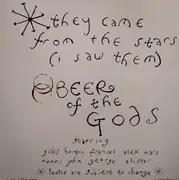 they came
from the stars
(i saw them)
BEER
of the
GODS
starring
giles horton frances alex mars
naomi john george alistair
* beers are subject to change *